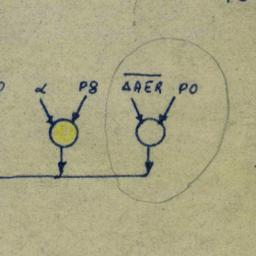 α P8 \overline{ΔAER} PO